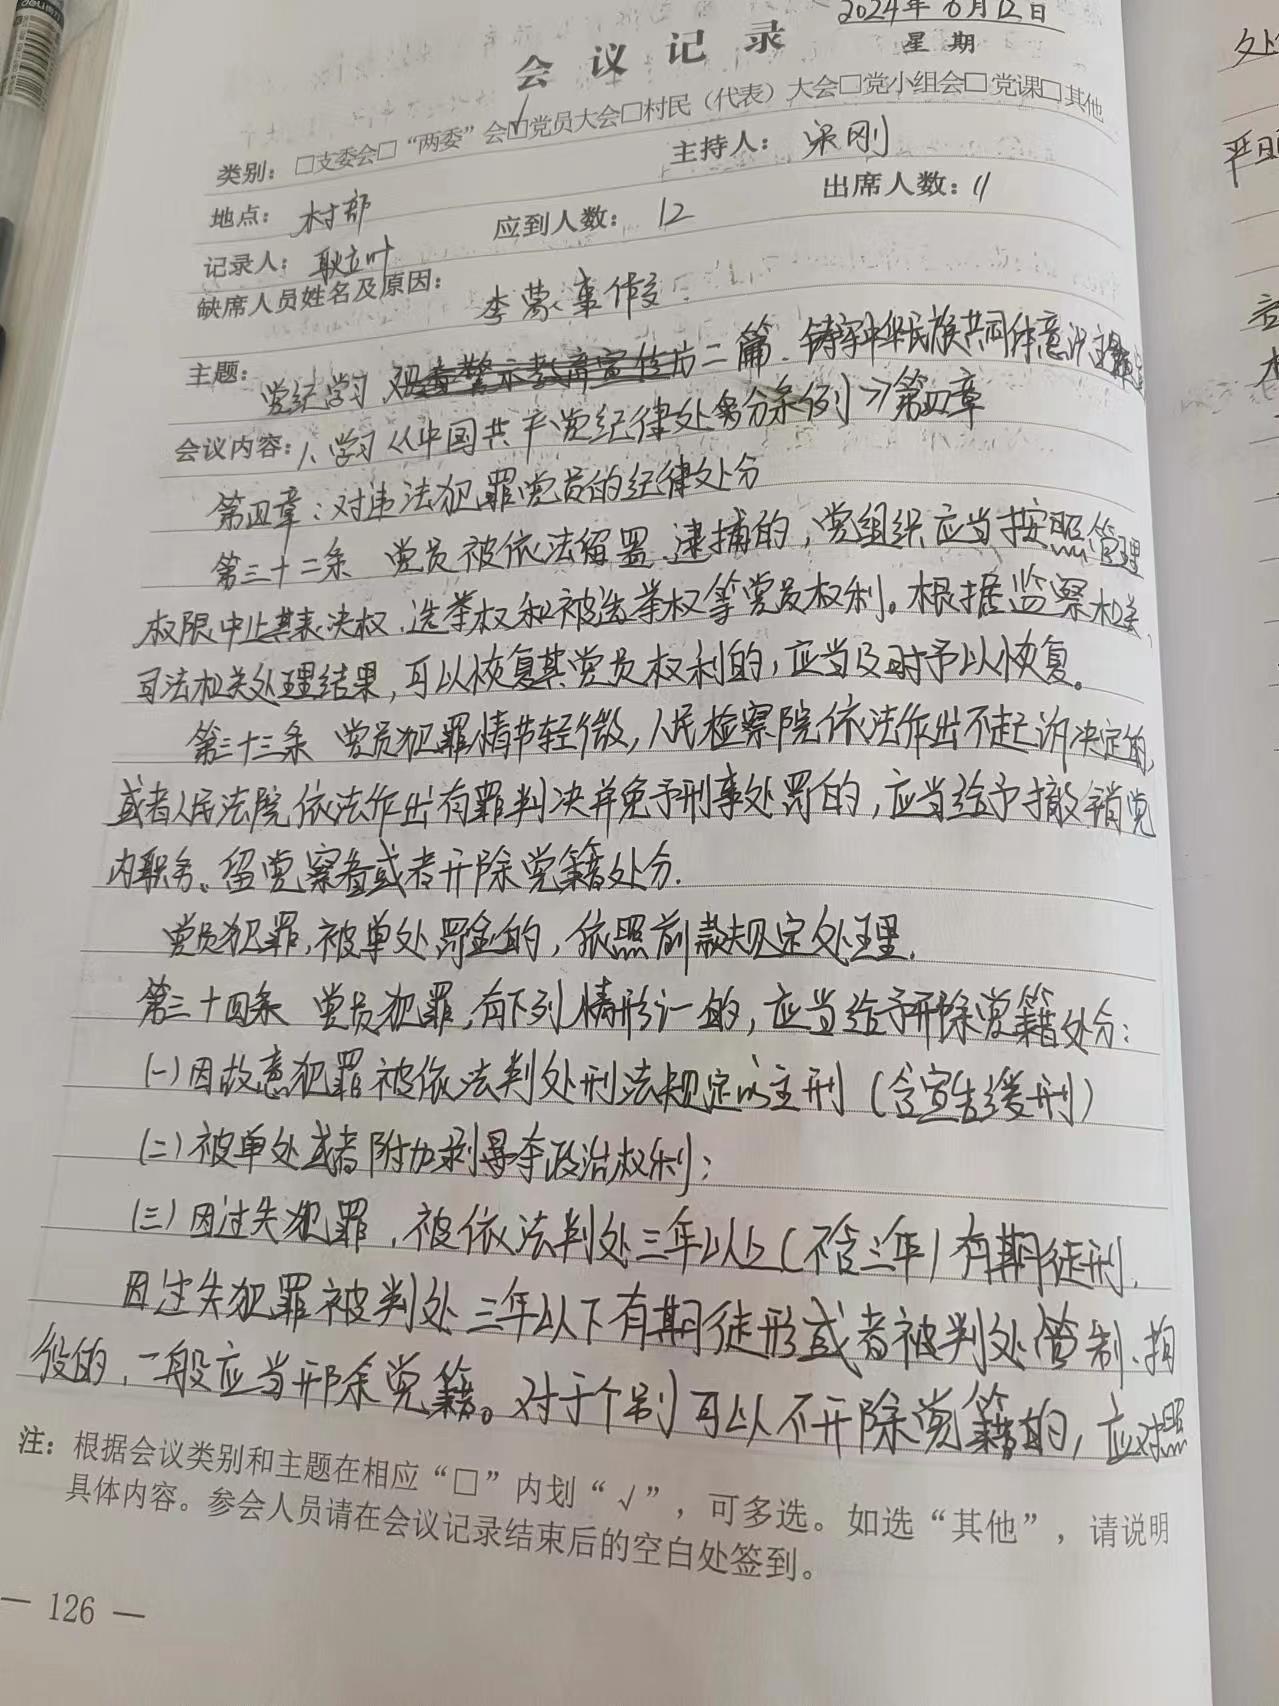 2024年6月12日
会议记录 星期
类别：□支委会□“两委”会☑党员大会□村民（代表）大会□党小组会□党课□其他
地点：村部 主持人：宋刚
记录人：耿立叶 应到人数：12 出席人数：11
缺席人员姓名及原因：
李蒙 事假
主题：党纪学习 二篇．铸牢中华民族共同体意识主题
会议内容：1、学习《中国共产党纪律处分条例》第四章
第四章：对违法犯罪党员的纪律处分
第三十二条 党员被依法留置、逮捕的，党组织应当按照管理
权限中止其表决权、选举权和被选举权等党员权利。根据监察机关、
司法机关处理结果，可以恢复其党员权利的，应当及时予以恢复。
第三十三条 党员犯罪情节轻微，人民检察院依法作出不起诉决定的，
或者人民法院依法作出有罪判决并免予刑事处罚的，应当给予撤销党
内职务、留党察看或者开除党籍处分．
党员犯罪，被单处罚金的，依照前款规定处理．
第三十四条 党员犯罪，有下列情形之一的，应当给予开除党籍处分：
（一）因故意犯罪被依法判处刑法规定的主刑（含宣告缓刑）
（二）被单处或者附加剥夺政治权利；
（三）因过失犯罪，被依法判处三年以上（不含三年）有期徒刑．
因过失犯罪被判处三年以下有期徒形或者被判处管制、拘
役的，一般应当开除党籍。对于个别可以不开除党籍的，应对照
注：根据会议类别和主题在相应“□”内划“√”，可多选。如选“其他”，请说明
具体内容。参会人员请在会议记录结束后的空白处签到。
— 126 —